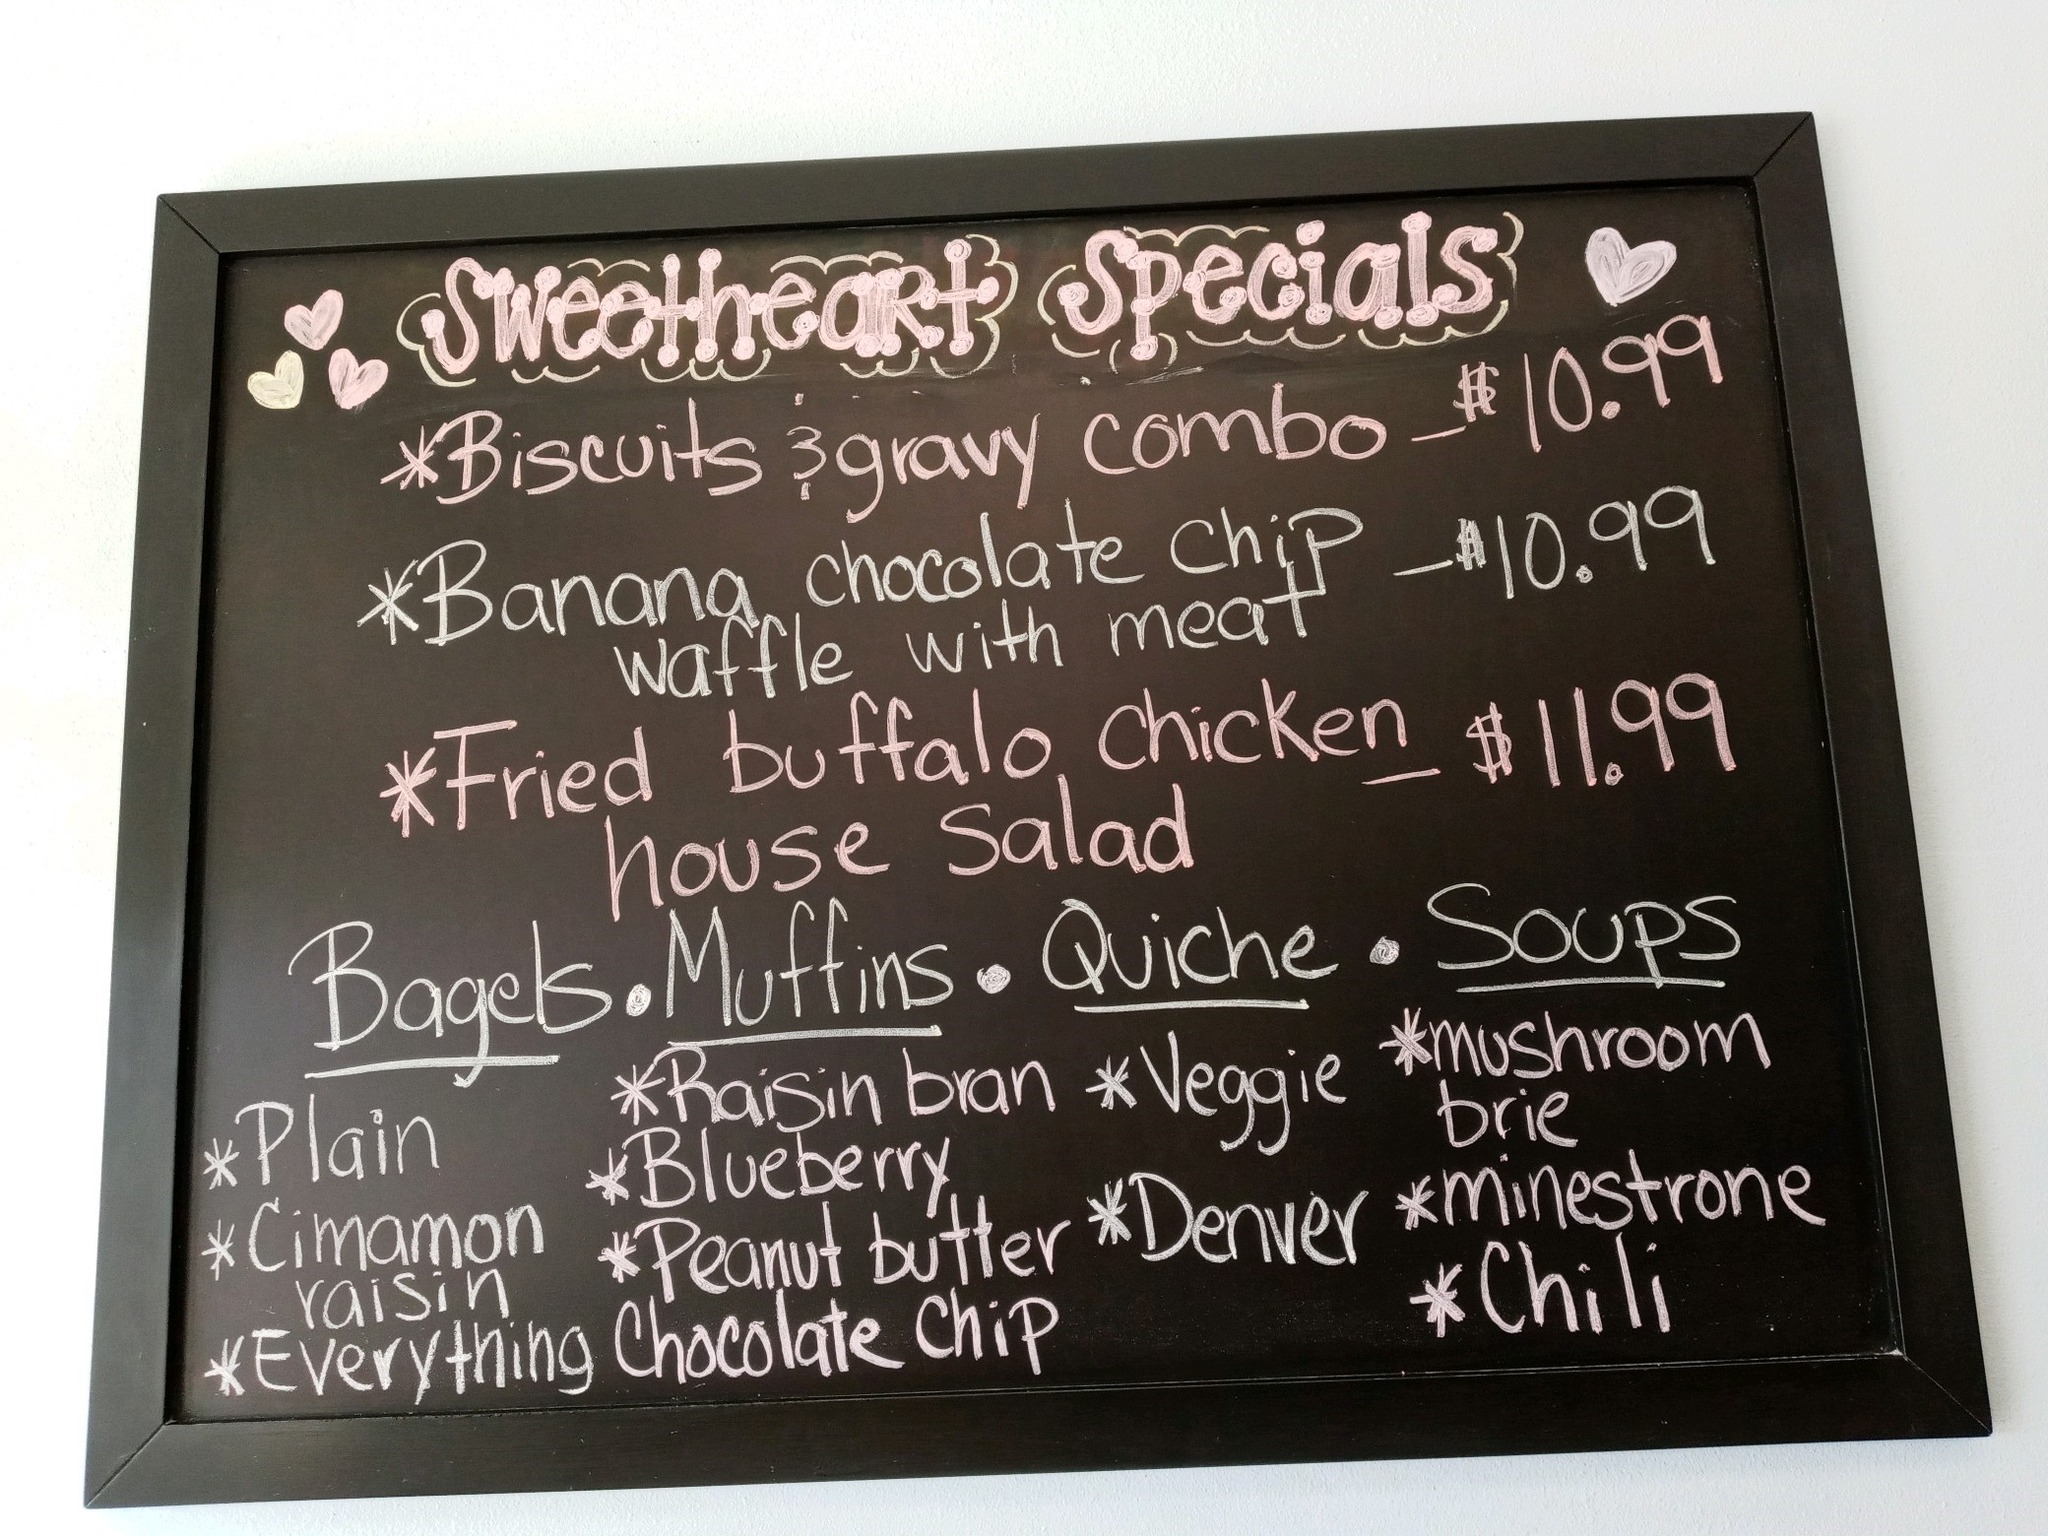 Sweetheart Specials
*Biscuits & gravy combo - $10.99
*Banana chocolate chip - $10.99
waffle with meat
*Fried buffalo chicken - $11.99
house salad
Bagels • Muffins • Quiche • Soups
*Plain
*Cimamon
raisin
*Everything
*Raisin bran
*Blueberry
*Peanut butter
Chocolate Chip
*Veggie
*Denver
*mushroom
brie
*minestrone
*Chili